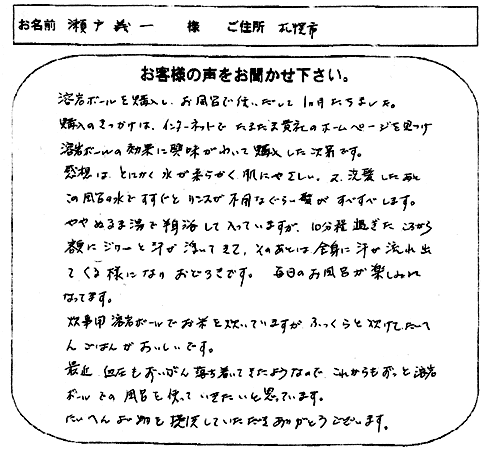 お名前 瀬戸義一 様 ご住所 札幌市
お客様の声をお聞かせ下さい。
溶岩ボールを購入し、お風呂で使いだして1ヶ月たちました。
購入のきっかけは、インターネットでたまたま貴社のホームページを見つけ
溶岩ボールの効果に興味がわいて購入した次第です。
感想は、とにかく水が柔らかく肌にやさしい。又、洗髪したあと
この風呂の水ですすぐとリンスが不用なぐらい髪がすべすべします。
ややぬるま湯で半身浴して入っていますが、10分程過ぎたころから
額にジワーと汗が浮いてきて、そのあとは全身に汗が流れ出
てくる様になりおどろきです。毎日のお風呂が楽しみに
なってます。
炊事用溶岩ボールでお米を炊いていますがふっくらと炊けてたいへ
んごはんがおいしいです。
最近、血圧もずいぶん落ち着いてきたようなので、これからもずっと溶岩
ボールでの風呂を使っていきたいと思っています。
たいへん良い物を提供していただきありがとうございます。